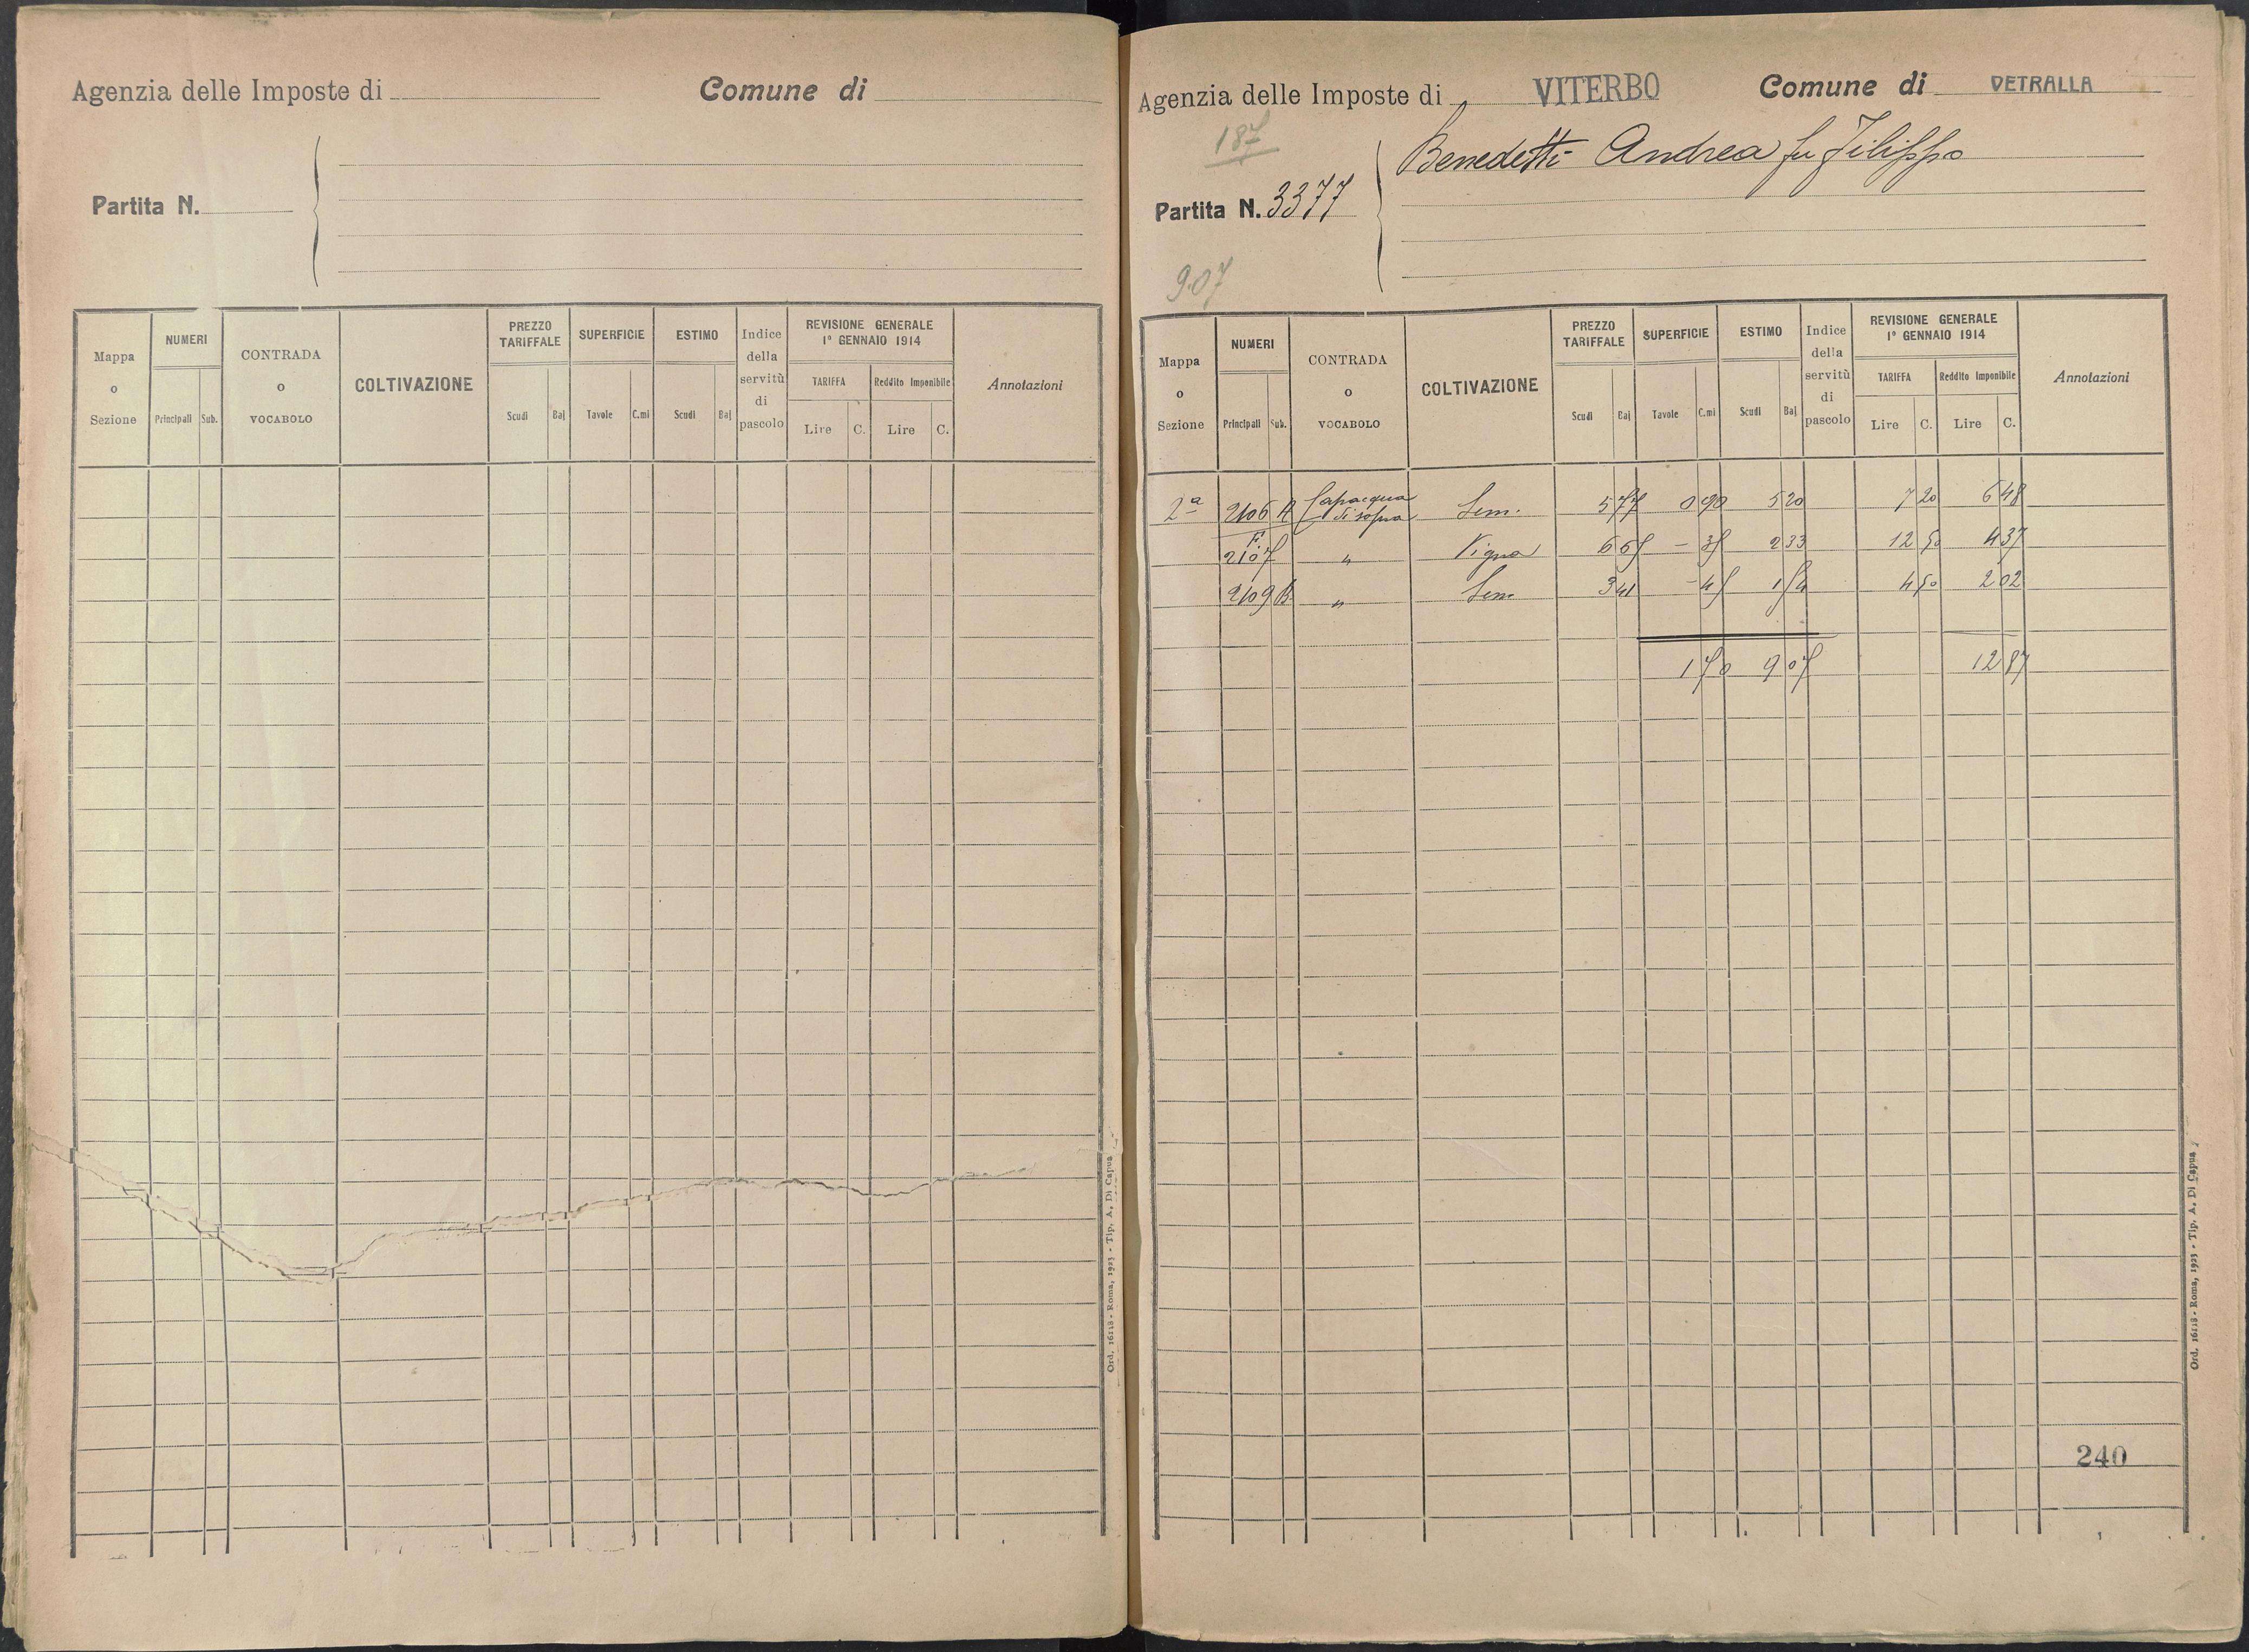 Agenzia delle Imposte di Comune di
Partita N.
Mappa o Sezione NUMERI Principali Sub. CONTRADA o VOCABOLO COLTIVAZIONE PREZZO TARIFFALE Scudi Baj SUPERFICIE Tavole C.mi ESTIMO Scudi Baj Indice della servitù di pascolo REVISIONE GENERALE 1° GENNAIO 1914 TARIFFA Lire C. Reddito Imponibile Lire C. Annotazioni
Ord. 16118 - Roma, 1923 - Tip. A. Di Capua
Agenzia delle Imposte di VITERBO Comune di VETRALLA
187
Benedetti Andrea fu Filippo
Partita N. 3377
907
Mappa o Sezione NUMERI Principali Sub. CONTRADA o VOCABOLO COLTIVAZIONE PREZZO TARIFFALE Scudi Baj SUPERFICIE Tavole C.mi ESTIMO Scudi Baj Indice della servitù di pascolo REVISIONE GENERALE 1° GENNAIO 1914 TARIFFA Lire C. Reddito Imponibile Lire C. Annotazioni
2ª 2106 Capacqua di sopra Sem. 5 77 0 90 5 20 7 20 6 48
2107 " Vigna 6 65 - 35 2 33 12 50 4 37
2109 B " Sem 3 41 - 45 1 54 4 50 2 02
1 70 9 07 12 87
240
Ord. 16118 - Roma, 1923 - Tip. A. Di Capua